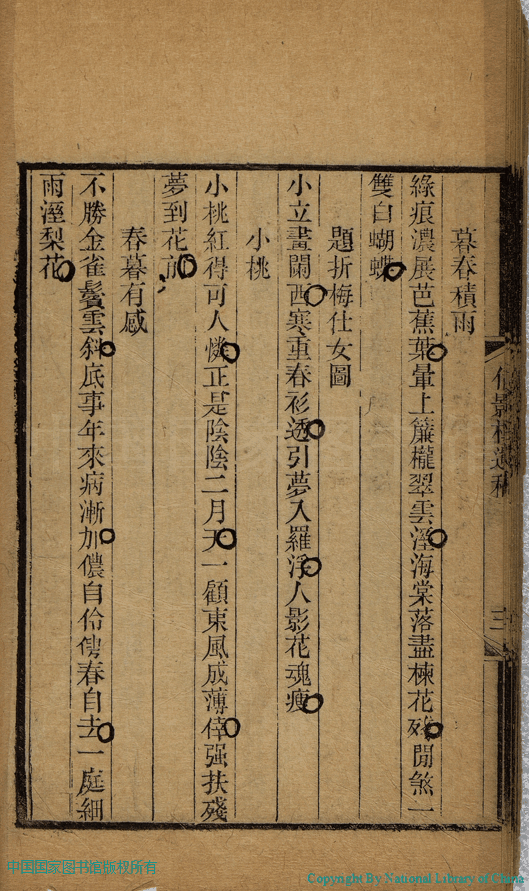 暮春積雨
綠痕濃展芭蕉葉暈上簾櫳翠雲溼海棠落盡楝花殘閒煞一
雙白蝴蝶
題折梅仕女圖
小立畫闌西寒重春衫透引夢入羅浮人影花魂瘦
小桃
小桃紅得可人憐正是陰陰二月天一顧東風成薄倖强扶殘
夢到花前
春暮有感
不勝金雀鬢雲斜底事年來病漸加儂自伶俜春自去一庭細
雨溼梨花
影樓遺稿
三
中国国家图书馆版权所有
Copyright By National Library of China